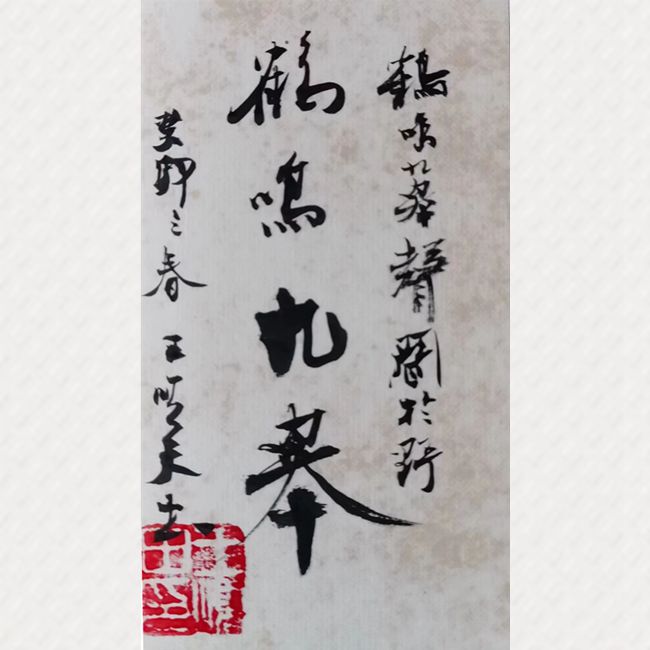 鶴鳴九皋聲聞於野
鶴鳴九皋
癸卯之春 王